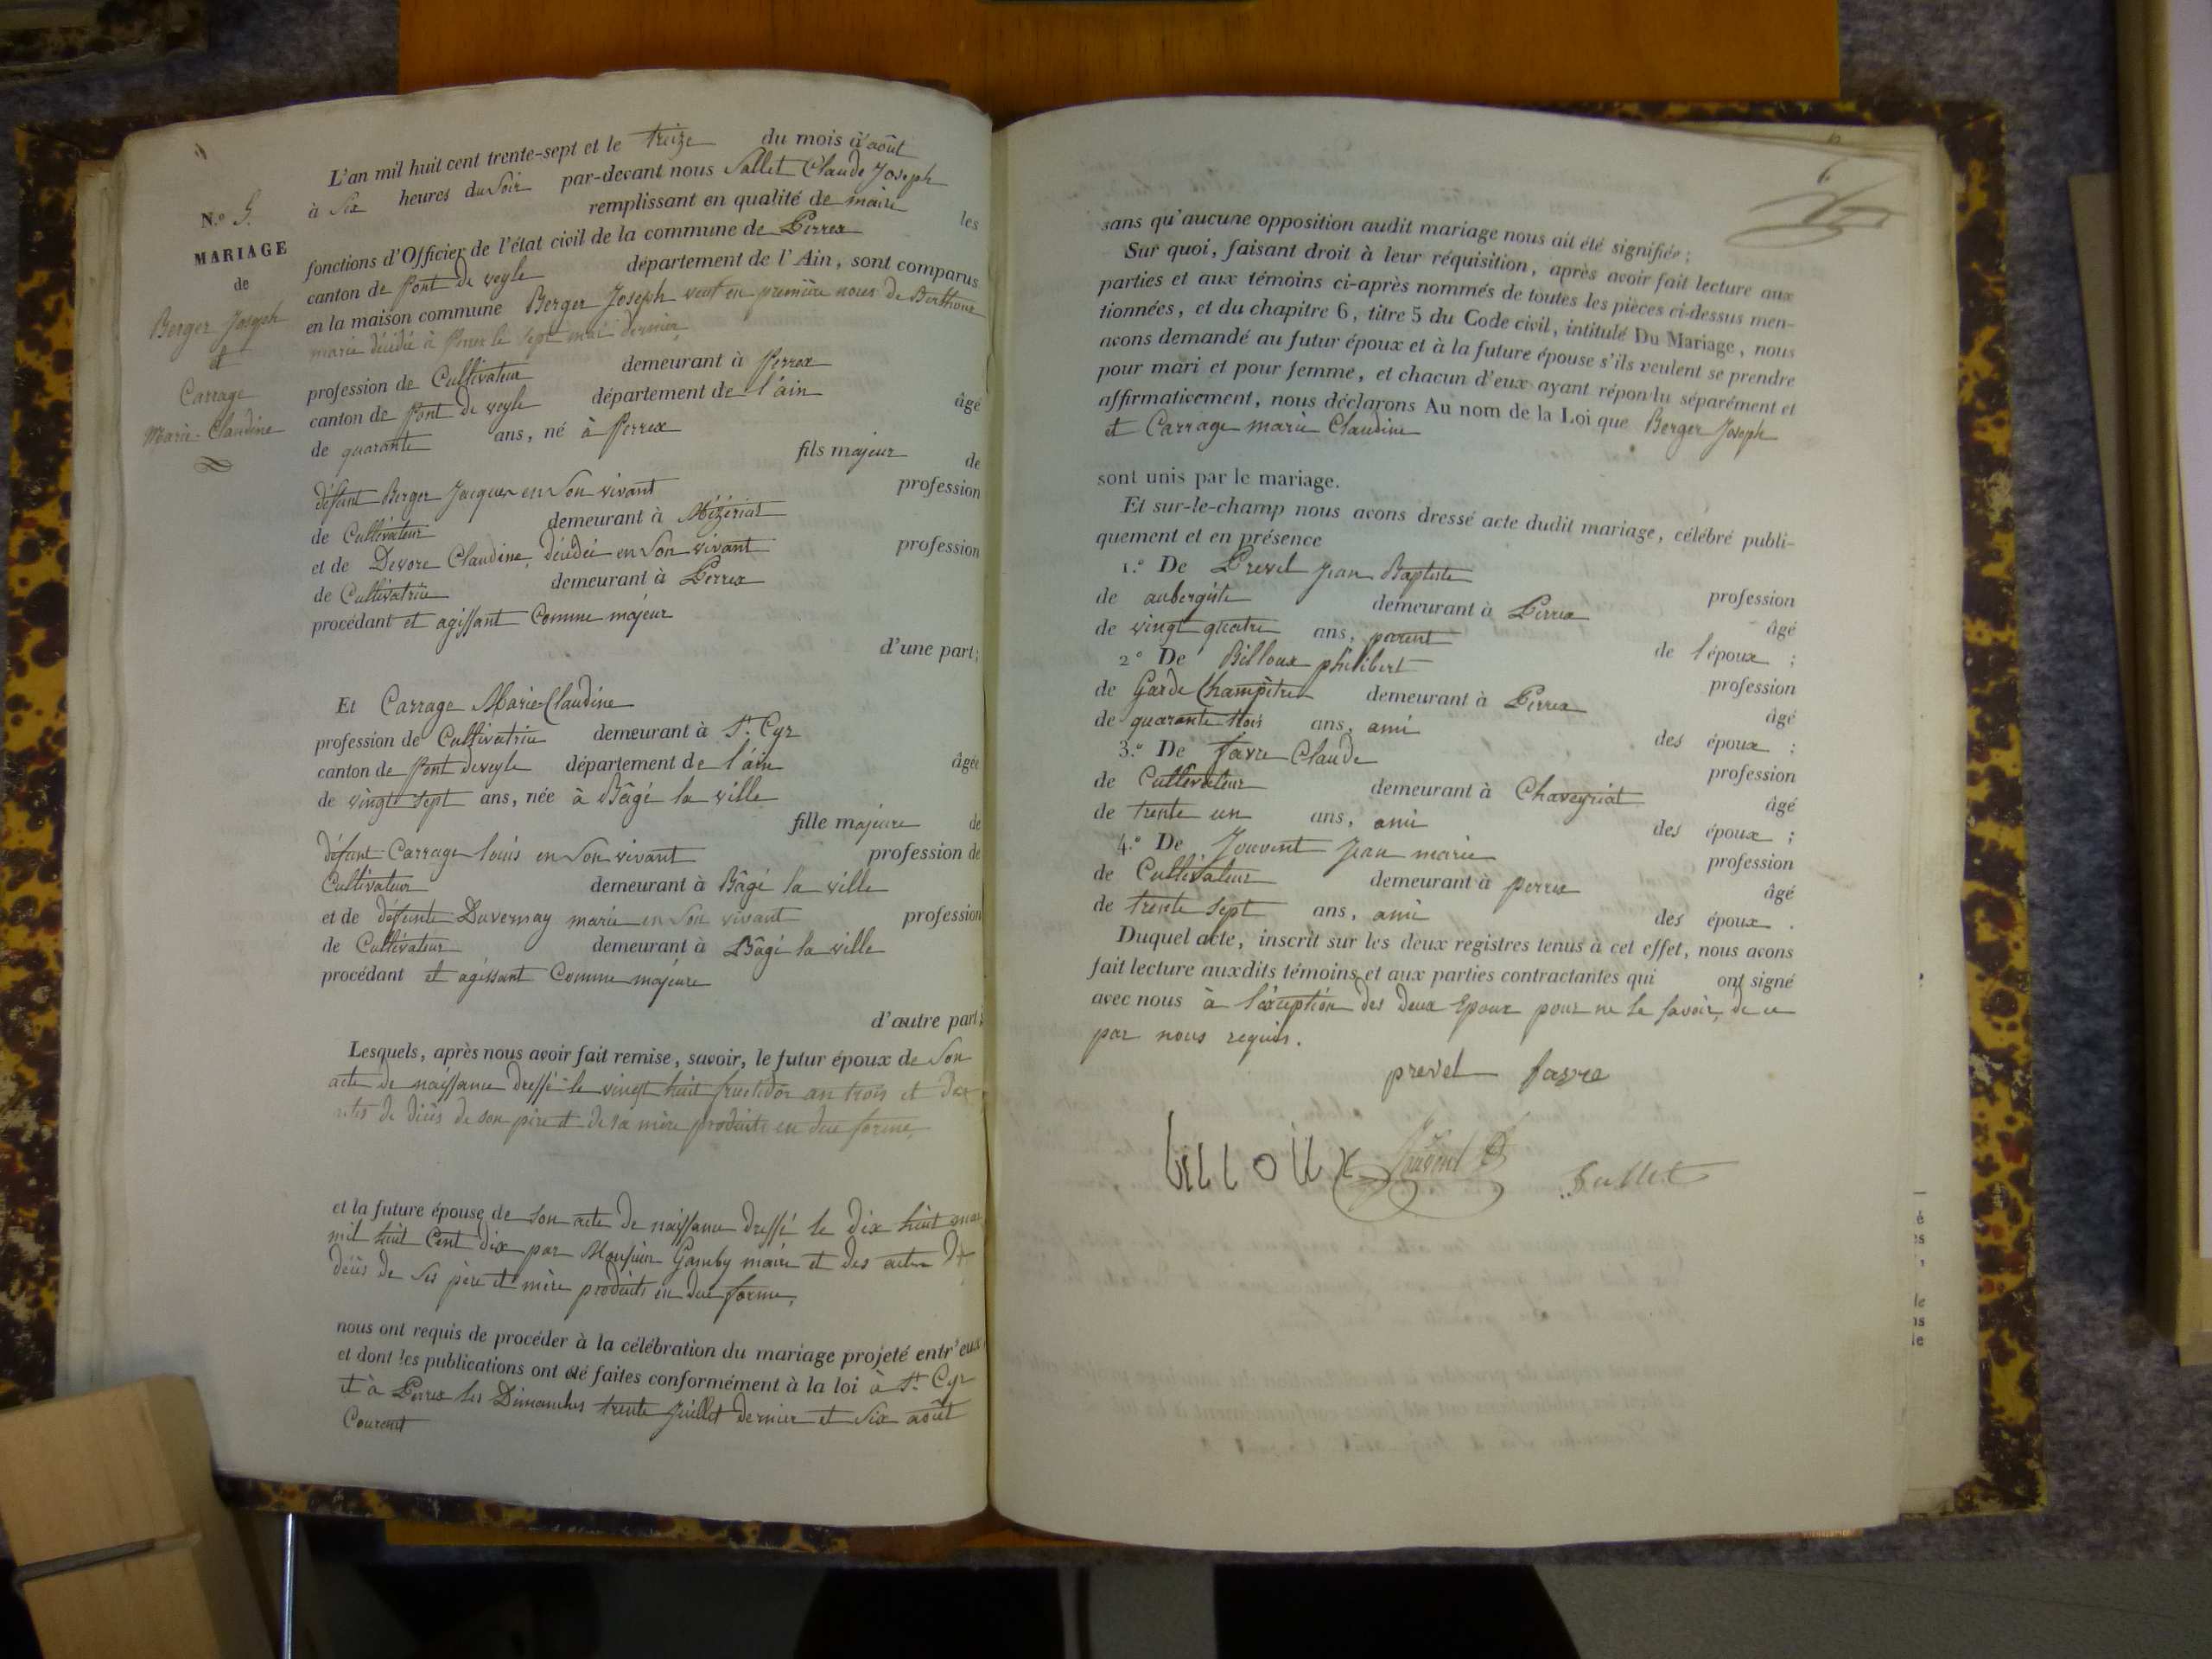 N.o 5.
MARIAGE
de
Berger Joseph
et
Carrage
Marie-Claudine
L'an mil huit cent trente-sept et le treize du mois d'août
à six heures du soir par-devant nous Sallet Claude Joseph
remplissant en qualité de maire les
fonctions d'Officier de l'état civil de la commune de Perrex
canton de Pont de veyle département de l'Ain, sont comparus
en la maison commune Berger Joseph veuf en première noces de Berthoue
marie décédée à Perrex le sept mai dernier,
profession de Cultivateur demeurant à Perrex
canton de Pont de veyle département de l'ain âgé
de quarante ans, né à Perrex
fils majeur de
défunt Berger Jacques en son vivant profession
de Cultivateur demeurant à Mézériat
et de Devore Claudine, décédée en son vivant profession
de Cultivatrice demeurant à Perrex
procédant et agissant Comme majeur
d'une part;
Et Carrage Marie-Claudine
profession de Cultivatrice demeurant à St. Cyr
canton de Pont deveyle département de l'ain âgée
de vingt sept ans, née à Bâgé la ville
fille majeure de
défunt Carrage louis en son vivant profession de
Cultivateur demeurant à Bâgé la ville
et de défunte Duvernay marie en son vivant profession
de Cultivateur demeurant à Bâgé la ville
procédant et agissant Comme majeure
d'autre part;
Lesquels, après nous avoir fait remise, savoir, le futur époux de son
acte de naissance dressé le vingt huit fructidor an trois et des
actes de décès de son père et de sa mère produits en due forme,
et la future épouse de son acte de naissance dressé le dix huit mai
mil huit Cent dix par Monsieur Gamby maire et des actes de
décès de ses père et mère produits en due forme,
nous ont requis de procéder à la célébration du mariage projeté entr'eux
et dont les publications ont été faites conformément à la loi à St. Cyr
et à Perrex les Dimanches trente juillet dernier et six août
Courant
6
sans qu'aucune opposition audit mariage nous ait été signifiée;
Sur quoi, faisant droit à leur réquisition, après avoir fait lecture aux
parties et aux témoins ci-après nommés de toutes les pièces ci-dessus men-
tionnées, et du chapitre 6, titre 5 du Code civil, intitulé Du Mariage, nous
avons demandé au futur époux et à la future épouse s'ils veulent se prendre
pour mari et pour femme, et chacun d'eux ayant répondu séparément et
affirmativement, nous déclarons Au nom de la Loi que Berger Joseph
et Carrage marie Claudine
sont unis par le mariage.
Et sur-le-champ nous avons dressé acte dudit mariage, célébré publi-
quement et en présence
1.o De Prevel Jean Baptiste profession
de aubergiste demeurant à Perrex âgé
de vingt quatre ans, parent de l'époux ;
2o De Billoux philibert profession
de Garde Champêtre demeurant à Perrex âgé
de quarante trois ans, ami des époux ;
3.o De favre Claude profession
de Cultivateur demeurant à Chaveyriat âgé
de trente un ans, ami des époux ;
4.o De Jouvent Jean marie profession
de Cultivateur demeurant à perrex âgé
de trente sept ans, ami des époux .
Duquel acte, inscrit sur les deux registres tenus à cet effet, nous avons
fait lecture auxdits témoins et aux parties contractantes qui ont signé
avec nous à l'exception des deux époux pour ne le savoir, de ce
par nous requis.
prevel favre
billoux Jouvent Sallet